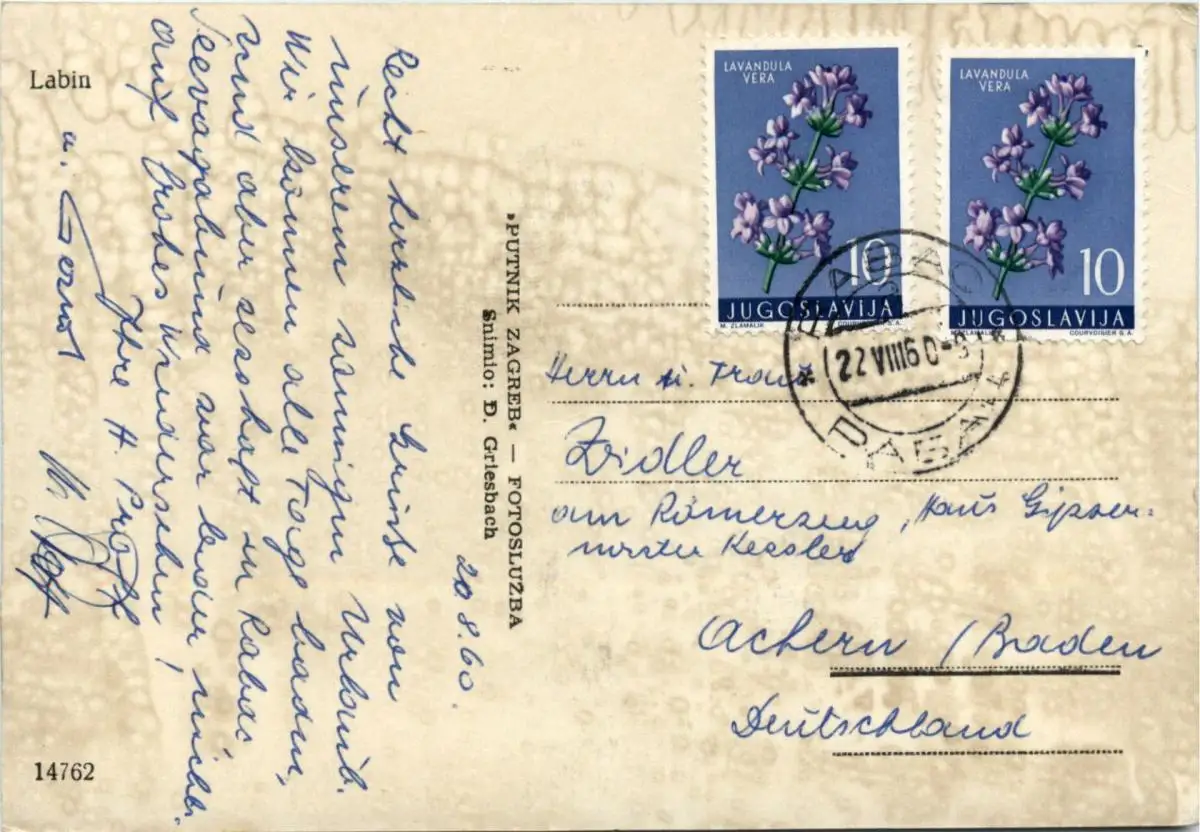 Labin
20.8.60.
Recht herzliche Grüße von
unserem sonnigen Urlaub.
Wir können alle Tage baden,
sind aber sesshaft in Rabac
war leider nicht.
auf frohes Wiedersehen!
Ihre H.
u. Gernot
14762
»PUTNIK ZAGREB« — FOTOSLUŽBA
Snimio: Đ. Griesbach
LAVANDULA
VERA
10
JUGOSLAVIJA
M. ZLAMALIK COURVOISIER S.A.
LAVANDULA
VERA
10
JUGOSLAVIJA
M. ZLAMALIK COURVOISIER S.A.
RABAC
22 VIII 60-9
РАБАЦ
Herrn u. Frau
Zidler
am Römerzeug, Haus Gipser-
meister Kessler
Achern / Baden
Deutschland